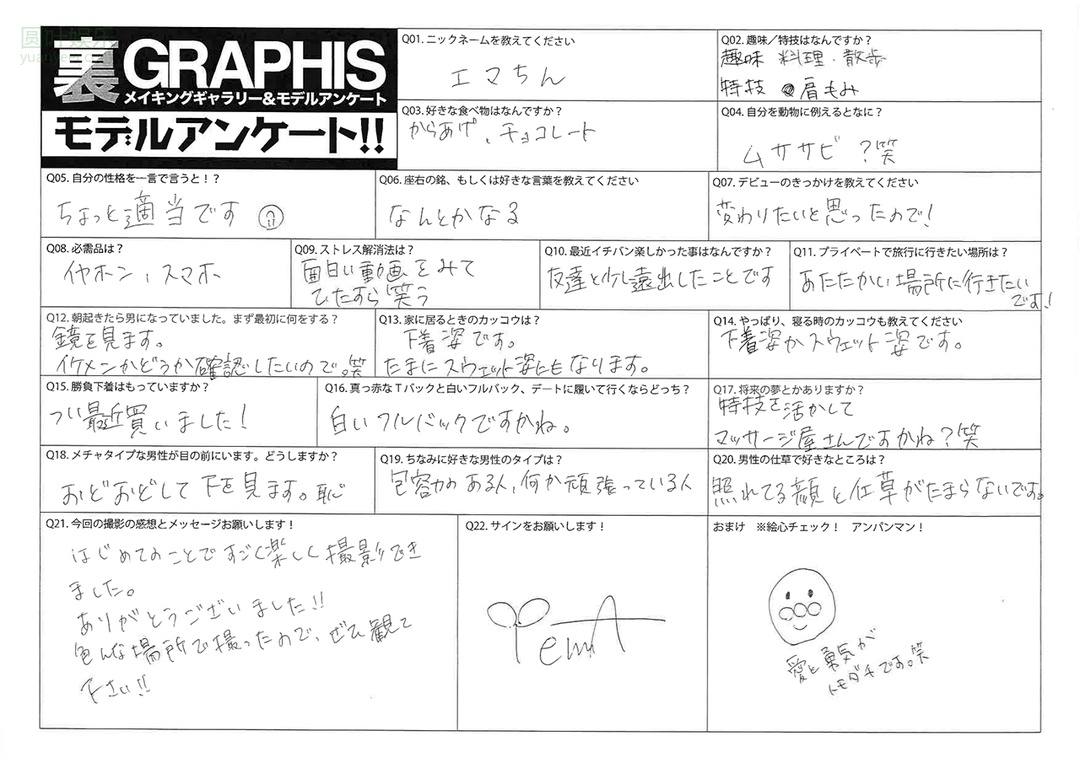 圆叶娱乐
裏GRAPHIS
メイキングギャラリー&モデルアンケート
モデルアンケート!!
Q01. ニックネームを教えてください
エマちん
Q02. 趣味／特技はなんですか？
趣味 料理・散歩
特技 肩もみ
Q03. 好きな食べ物はなんですか？
からあげ、チョコレート
Q04. 自分を動物に例えるとなに？
ムササビ？笑
Q05. 自分の性格を一言で言うと！？
ちょっと適当です
Q06. 座右の銘、もしくは好きな言葉を教えてください
なんとかなる
Q07. デビューのきっかけを教えてください
変わりたいと思ったので！
Q08. 必需品は？
イヤホン、スマホ
Q09. ストレス解消法は？
面白い動画をみて
ひたすら笑う
Q10. 最近イチバン楽しかった事はなんですか？
友達と少し遠出したことです
Q11. プライベートで旅行に行きたい場所は？
あたたかい場所に行きたい
です！
Q12. 朝起きたら男になっていました。まず最初に何をする？
鏡を見ます。
イケメンかどうか確認したいので。笑
Q13. 家に居るときのカッコウは？
下着姿です。
たまにスウェット姿にもなります。
Q14. やっぱり、寝る時のカッコウも教えてください
下着姿かスウェット姿です。
Q15. 勝負下着はもっていますか？
つい最近買いました！
Q16. 真っ赤なTバックと白いフルバック、デートに履いて行くならどっち？
白いフルバックですかね。
Q17. 将来の夢とかありますか？
特技を活かして
マッサージ屋さんですかね？笑
Q18. メチャタイプな男性が目の前にいます。どうしますか？
おどおどして下を見ます。恥
Q19. ちなみに好きな男性のタイプは？
包容力のある人、何か頑張っている人
Q20. 男性の仕草で好きなところは？
照れてる顔と仕草がたまらないです。
Q21. 今回の撮影の感想とメッセージお願いします！
はじめてのことですごく楽しく撮影でき
ました。
ありがとうございました!!
色んな場所で撮ったので、ぜひ観て
下さい!!
Q22. サインをお願いします！
emA
おまけ ※絵心チェック！ アンパンマン！
愛と勇気が
トモダチです。笑